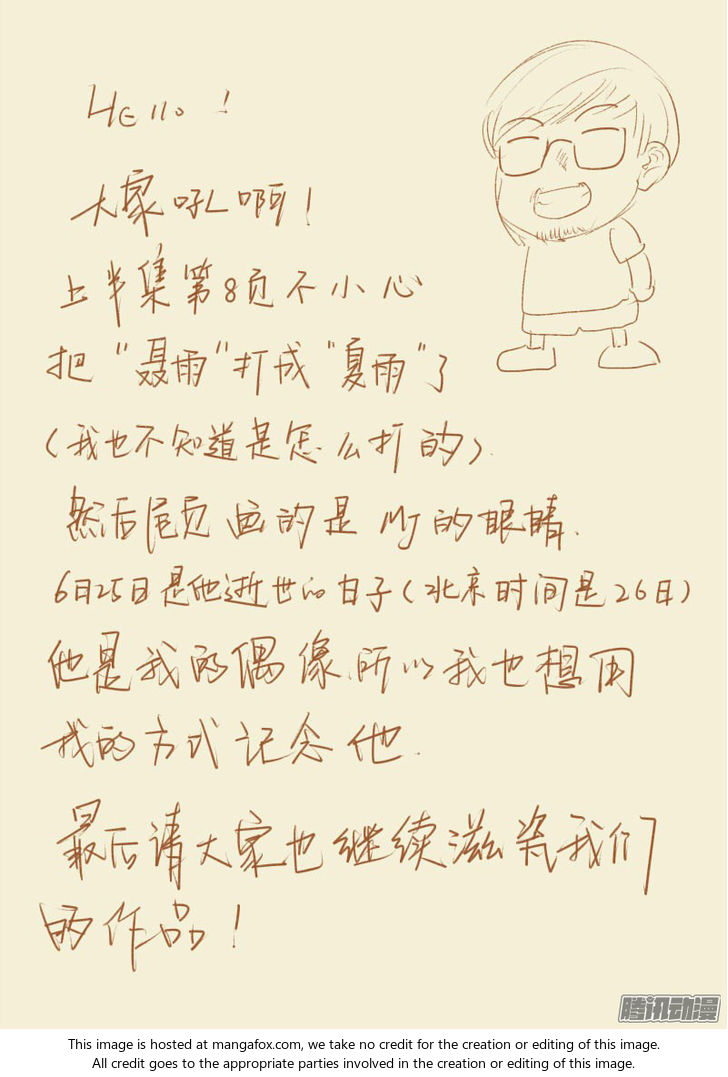 Hello!
大家吼啊!
上半集第8页不小心
把“聂雨”打成“夏雨”了
(我也不知道是怎么打的).
然后尾页画的是MJ的眼睛.
6月25日是他逝世的日子(北京时间是26日)
他是我的偶像.所以我也想用
我的方式记念他.
最后请大家也继续滋瓷我们
的作品!
腾讯动漫
This image is hosted at mangafox.com, we take no credit for the creation or editing of this image.
All credit goes to the appropriate parties involved in the creation or editing of this image.